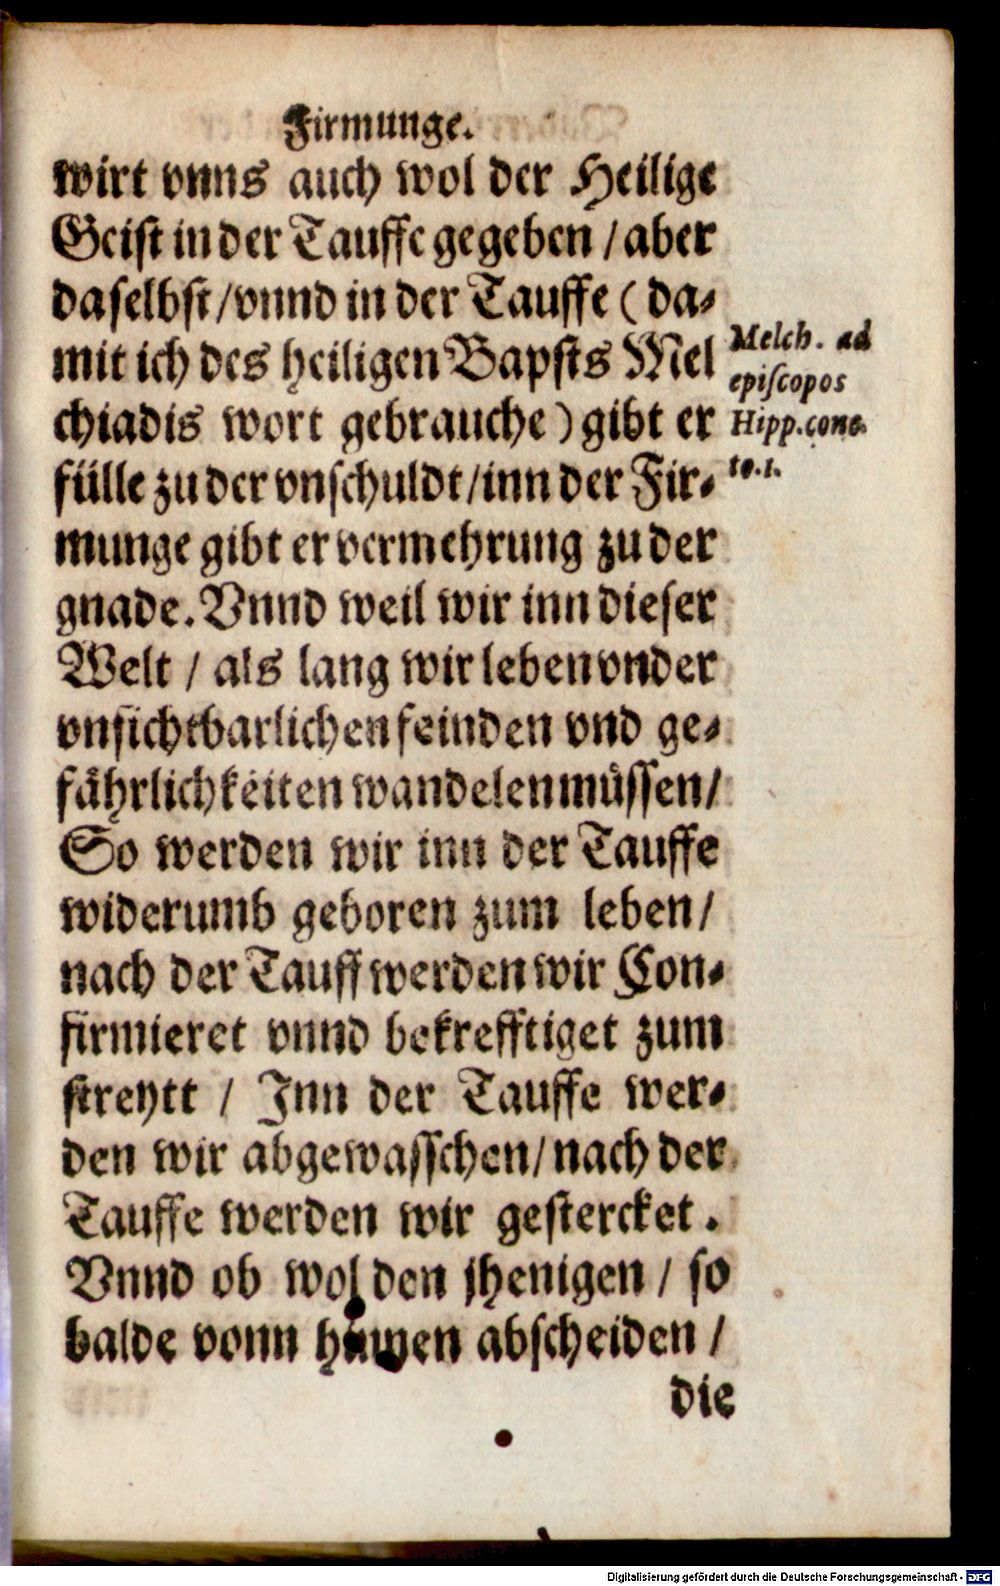 Firmunge.
wirt vnns auch wol der Heilige
Geist in der Tauffe gegeben / aber
daselbst / vnnd in der Tauffe ( da⸗
mit ich des heiligen Bapsts Mel
chiadis wort gebrauche ) gibt er
fülle zu der vnschuldt / inn der Fir⸗
munge gibt er vermehrung zu der
gnade. Vnnd weil wir inn dieser
Welt / als lang wir leben vnder
vnsichtbarlichen feinden vnd ge⸗
fährlichkeiten wandelen müssen /
So werden wir inn der Tauffe
widerumb geboren zum leben /
nach der Tauff werden wir Con⸗
firmieret vnnd bekrefftiget zum
streytt / Inn der Tauffe wer⸗
den wir abgewasschen / nach der
Tauffe werden wir gestercket .
Vnnd ob wol den jhenigen / so
balde vonn abscheiden /
die
Melch. ad
episcopos
Hipp. conc.
to. 1.
Digitalisierung gefördert durch die Deutsche Forschungsgemeinschaft - DFG